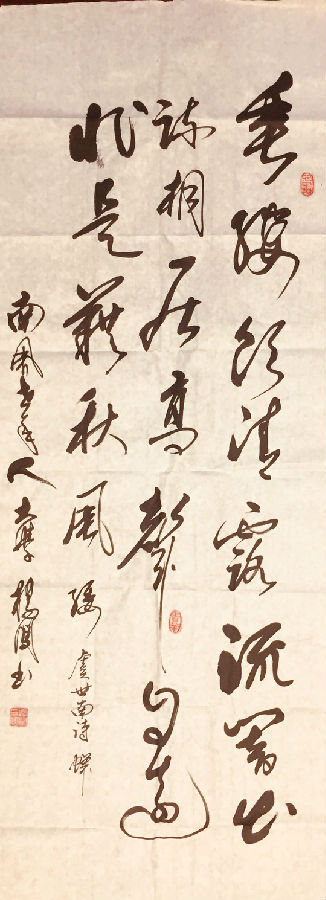 垂緌飲清露流響出
疏桐居高聲自遠
非是藉秋風 緌
虞世南詩 蟬
南風 人 楊 书